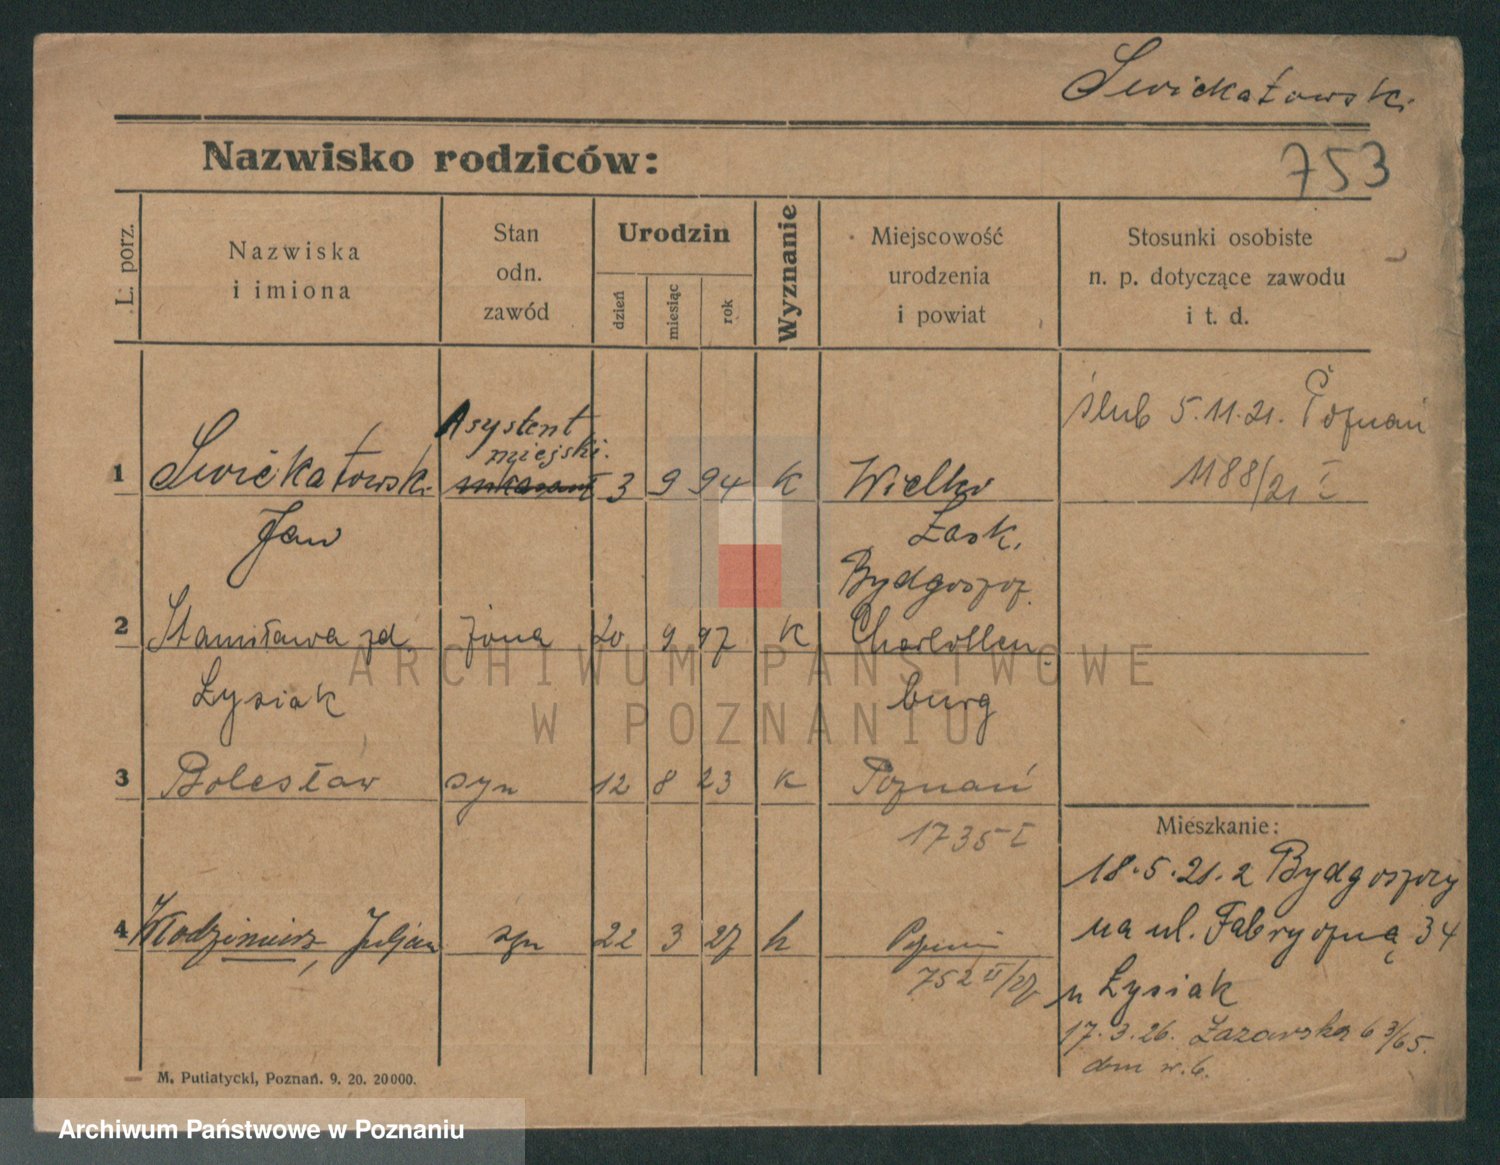 Swickatowski
Nazwisko rodziców:
753
L. porz.
Nazwiska
i imiona
Stan
odn.
zawód
Urodzin
dzień
miesiąc
rok
Wyznanie
Miejscowość
urodzenia
i powiat
Stosunki osobiste
n. p. dotyczące zawodu
i t. d.
ślub 5.11.21. Poznań
1188/21 I
Asystent
miejski.
1 Swickatowski 3 9 94 K Wielko
Jan Łask.
2 Stanisława zd. żona 20 9 97 K Charlotten-
Łysiak burg
3 Bolesław syn 12 8 23 K Poznań
1735 I
Mieszkanie:
18.5.21. z Bydgoszczy
na ul. Fabryczną 34
4 Włodzimierz, Juljan syn 22 3 27 k Poznań
752 II/27
u Łysiak
17.3.26. Łazarska 6 3/65.
dm w. 6.
M. Putiatycki, Poznań. 9. 20. 20000.
ARCHIWUM PAŃSTWOWE
W POZNANIU
Archiwum Państwowe w Poznaniu